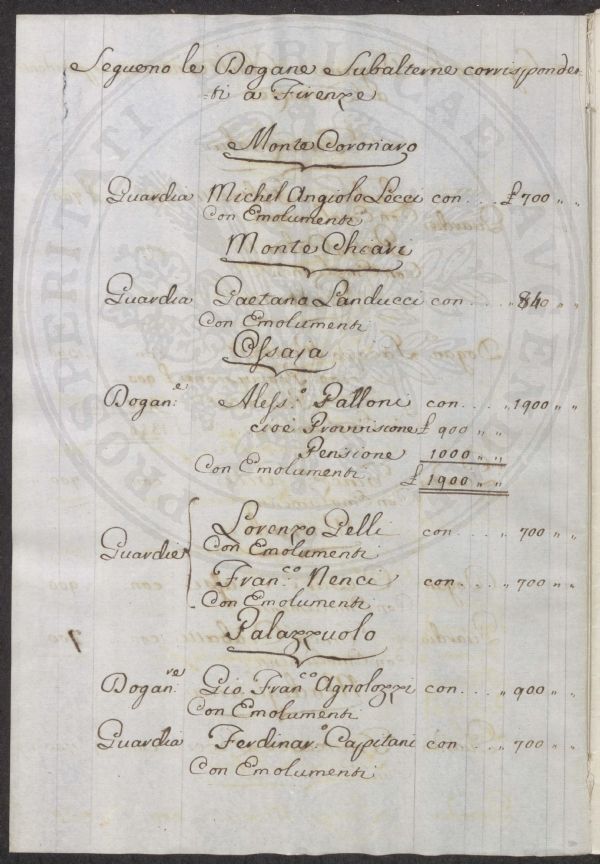 Seguono le Dogane Subalterne corrisponden-
-ti a Firenze
Monte Coronaro
Guardia Michel Angiolo Lecci con . . . £ 700 " "
Con Emolumenti
Monte Chiari
Guardia Gaetano Landucci con . . . . " 840 " "
Con Emolumenti
Ossaja
Dogan.e Aless.o Palloni con . . . . " 1900 " "
cioè Provvisione £ 900 " "
Pensione 1000 " "
Con Emolumenti £ 1900 " "
Guardie Lorenzo Gelli con . . . . " 700 " "
Con Emolumenti
Fran.co Nenci con . . . . " 700 " "
Con Emolumenti
Palazzuolo
Dogan.re Gio. Fran.co Agnolozzi con . . . . " 900 " "
Con Emolumenti
Guardia Ferdinan.o Capitani con . . . . " 700 " "
Con Emolumenti
PROSPERITATI PUBLICAE